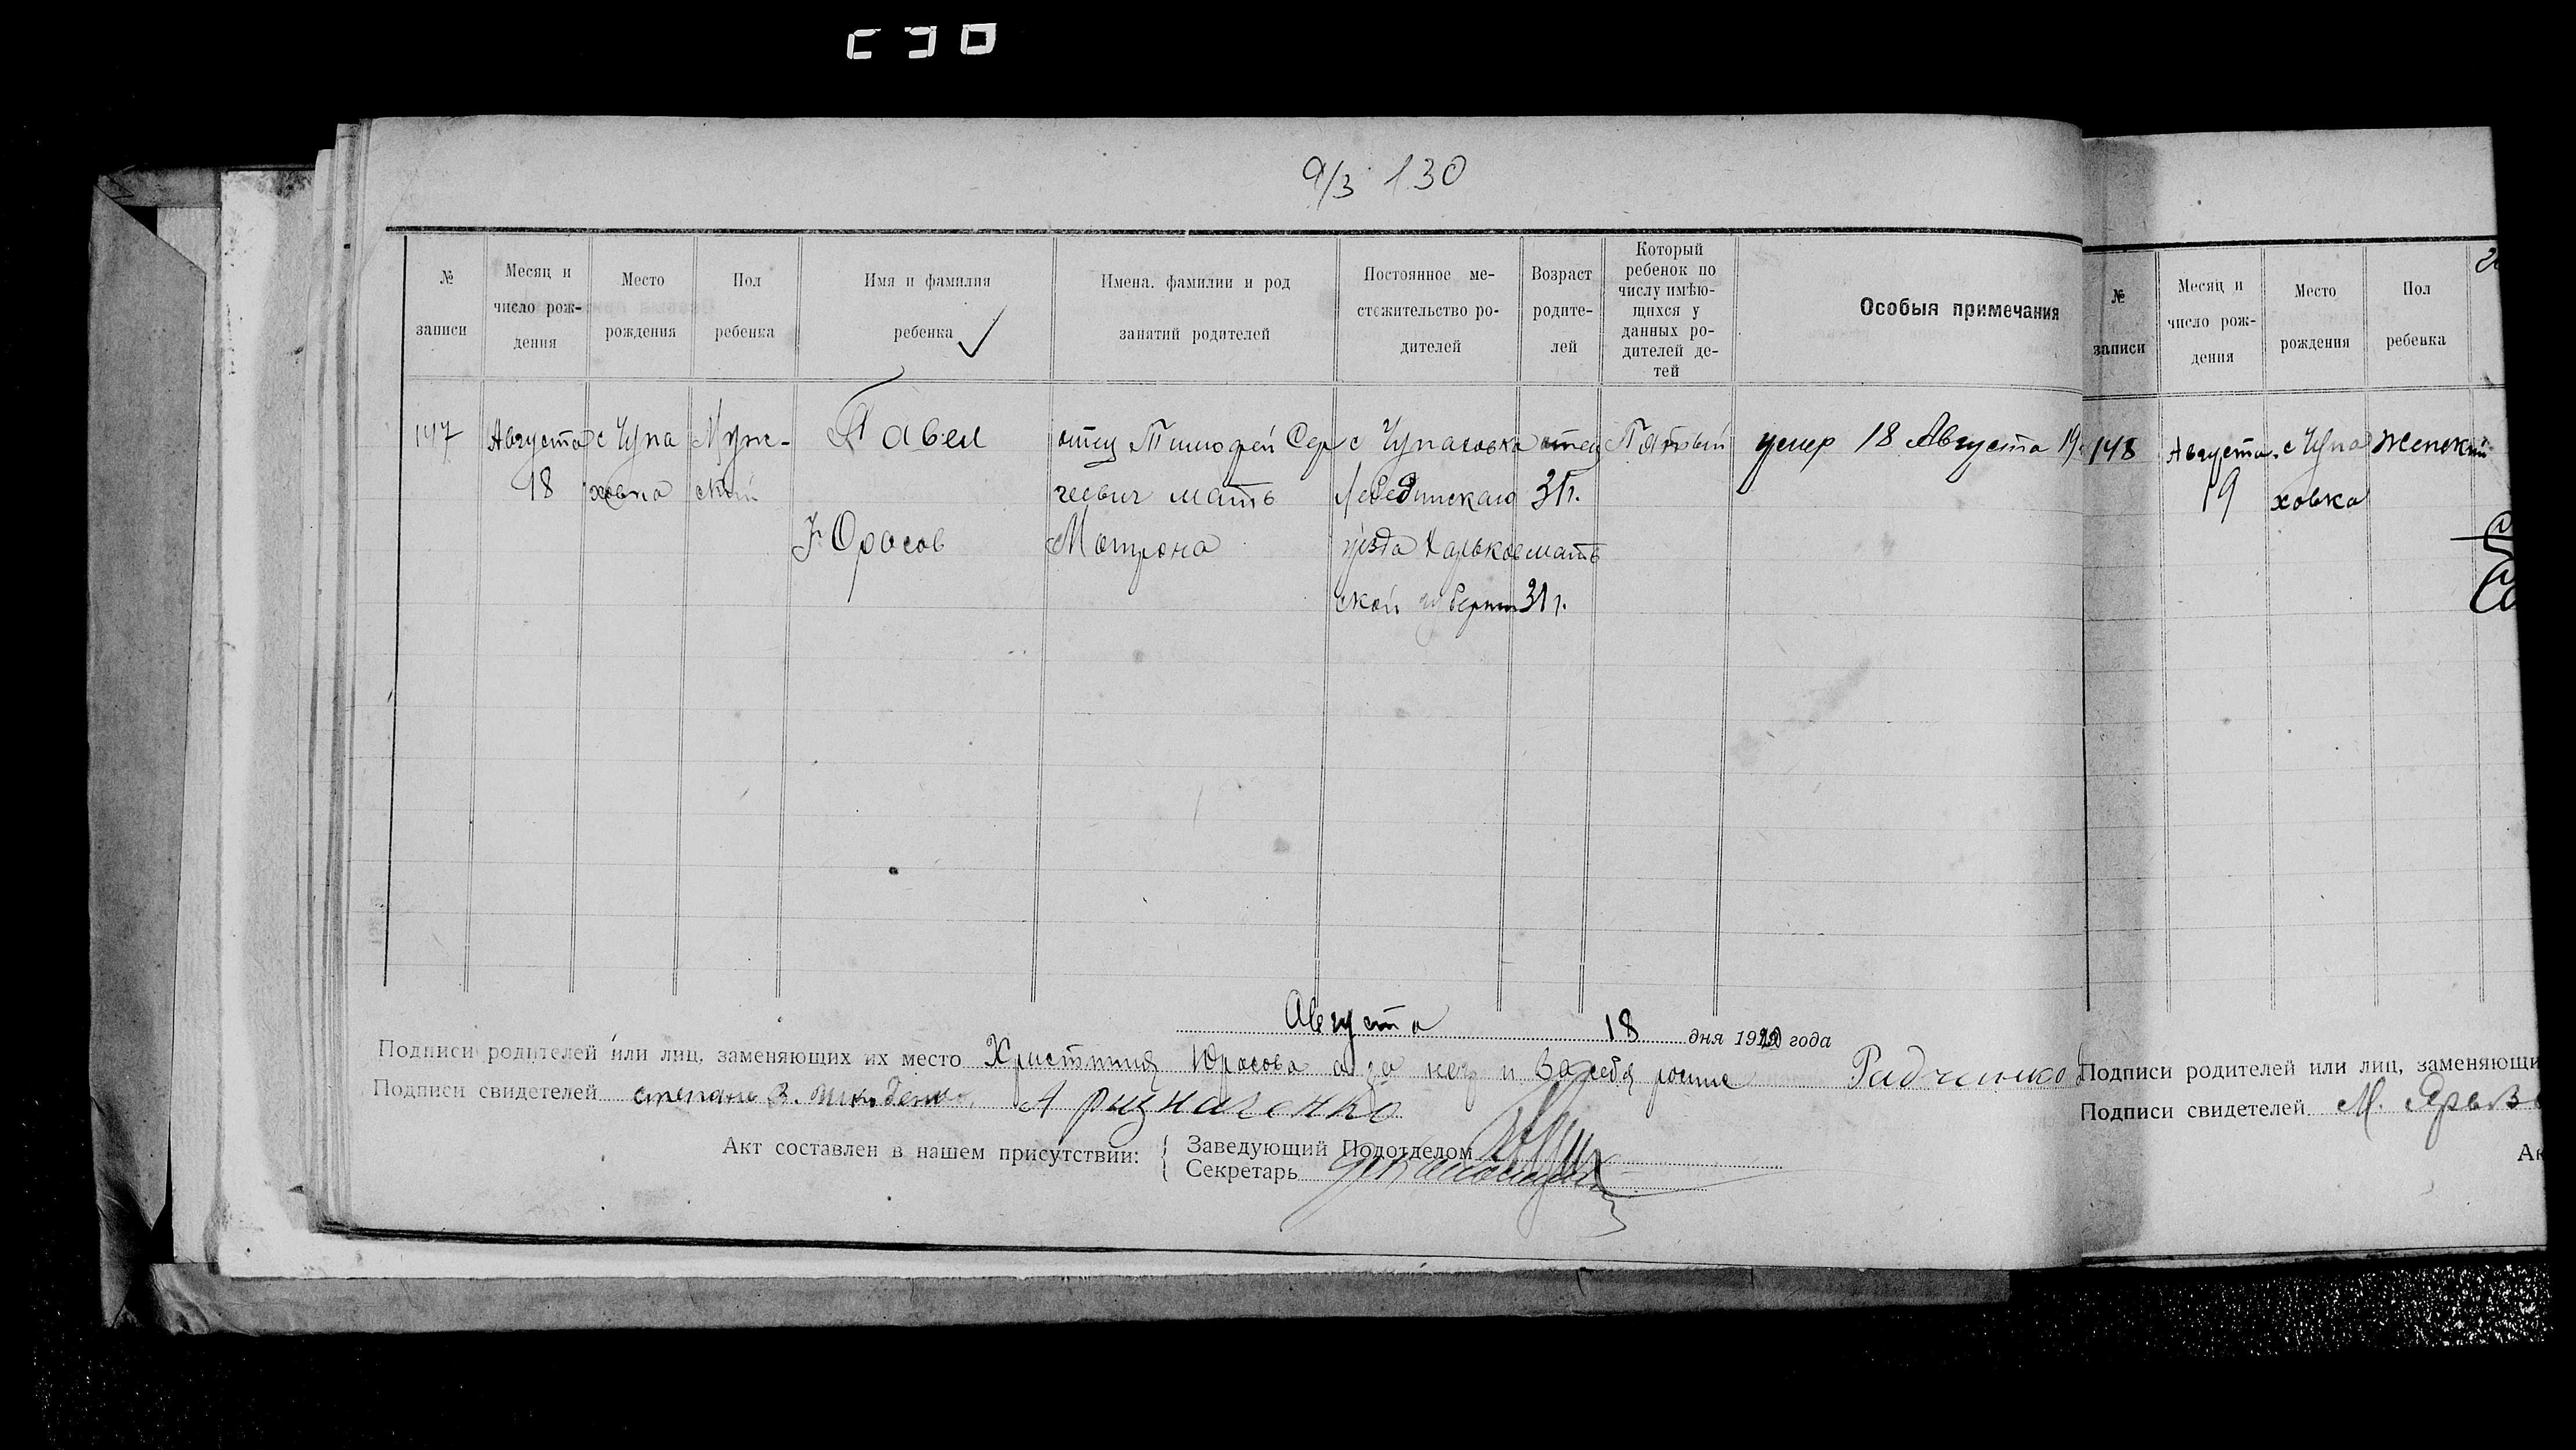 9/3 130
№ записи
Месяц и число рождения
Место рождения
Пол ребенка
Имя и фамилия ребенка
Имена, фамилии и род занятий родителей
Постоянное местожительство родителей
Возраст родителей
Который ребенок по числу имѣющихся у данных родителей детей
Особыя примечания
147
Августа
18
с Чупа
ховка
Муж-
ской
Павел
Юрасов
отец Тимофей Сер
геевич мать
Мотрона
с Чупаховка
Лебединскаго
уезда Харьков
ской губернии
отец
31 г.
мать
31 г.
Пятый
умер 18 Августа 19
Августа 18 дня 1920 года
Подписи родителей или лиц, заменяющих их место Христиния Юрасова а за нея и за себя Радченко
Подписи свидетелей степан
Акт составлен в нашем присутствии:
Заведующий Подотделом
Секретарь
№ записи
Месяц и число рождения
Место рождения
Пол ребенка
148
Августа
19
с Чупа
ховка
Женский
Подписи родителей или лиц, заменяющи
Подписи свидетелей М.
Ак